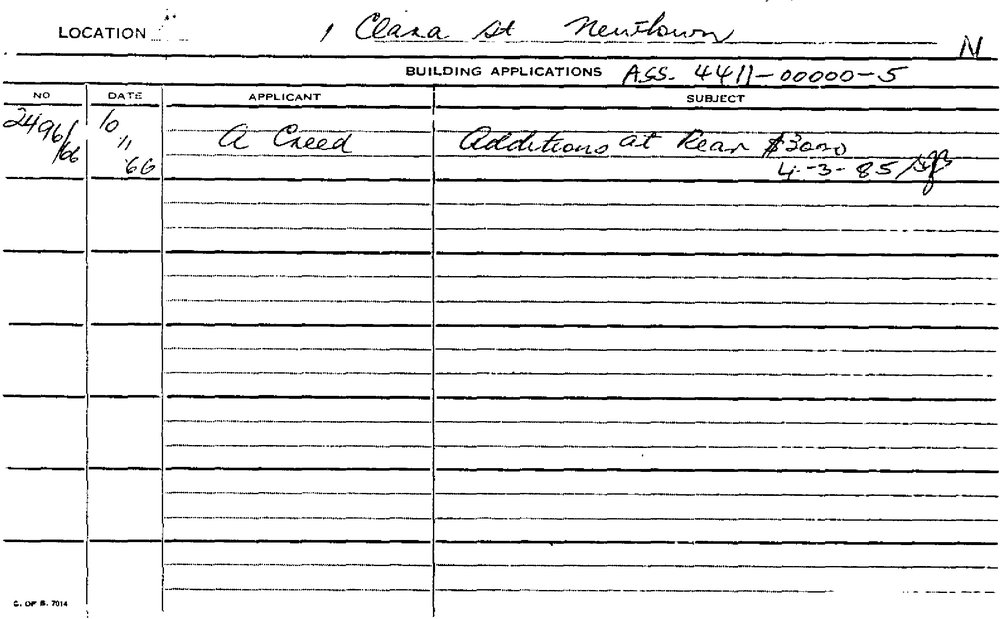 LOCATION 1 Clara St Newtown
N
BUILDING APPLICATIONS ASS. 4411-00000-5
NO DATE APPLICANT SUBJECT
2496/66 10 11 66 A Creed Additions at Rear $3000
4-3-85
C. OF S. 7014